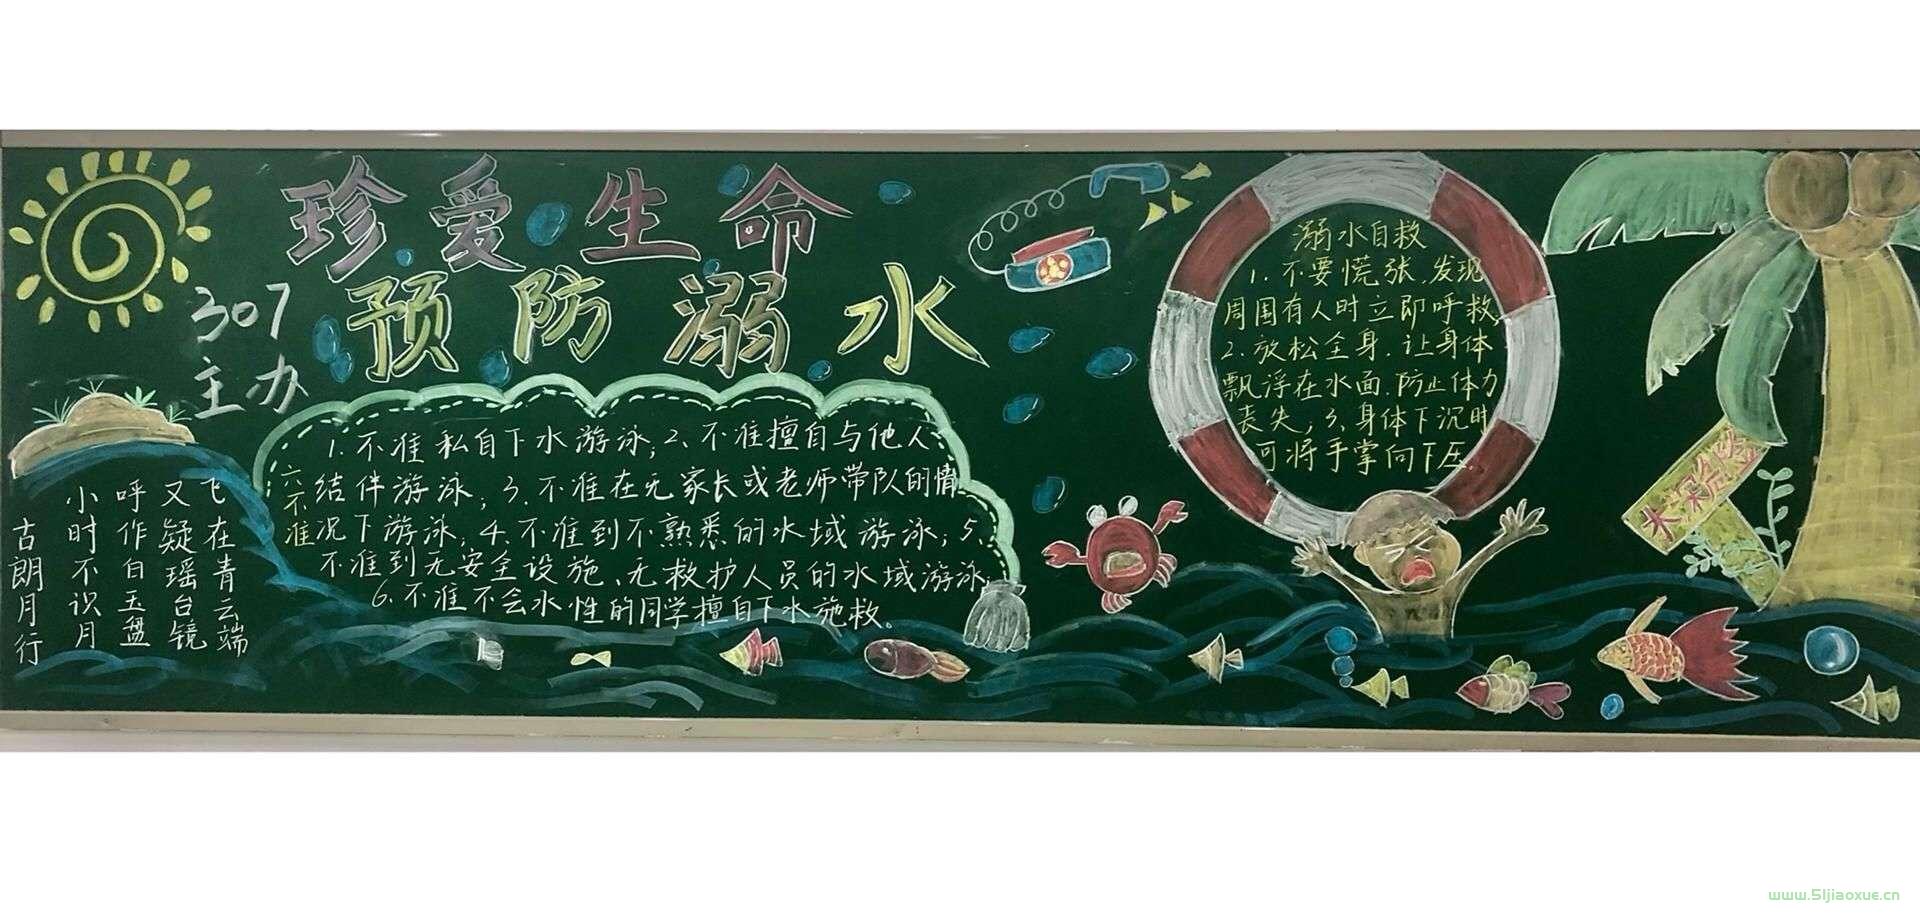 珍爱生命
预防溺水
307
主办
六不准
1.不准私自下水游泳;2、不准擅自与他人
结伴游泳;3.不准在无家长或老师带队的情
况下游泳;4.不准到不熟悉的水域游泳;5、
不准到无安全设施、无救护人员的水域游泳;
6.不准不会水性的同学擅自下水施救。
溺水自救
1.不要慌张,发现
周围有人时立即呼救,
2.放松全身.让身体
飘浮在水面.防止体力
丧失;3、身体下沉时
可将手掌向下压.
水深危险
古朗月行
小时不识月
呼作白玉盘
又疑瑶台镜
飞在青云端
www.51jiaoxue.cn